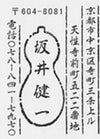 〒604-8081
京都市中京区寺町三条上ル
天性寺前町五二二番地
坂井健一
電話〇七八-八四一-九七〇